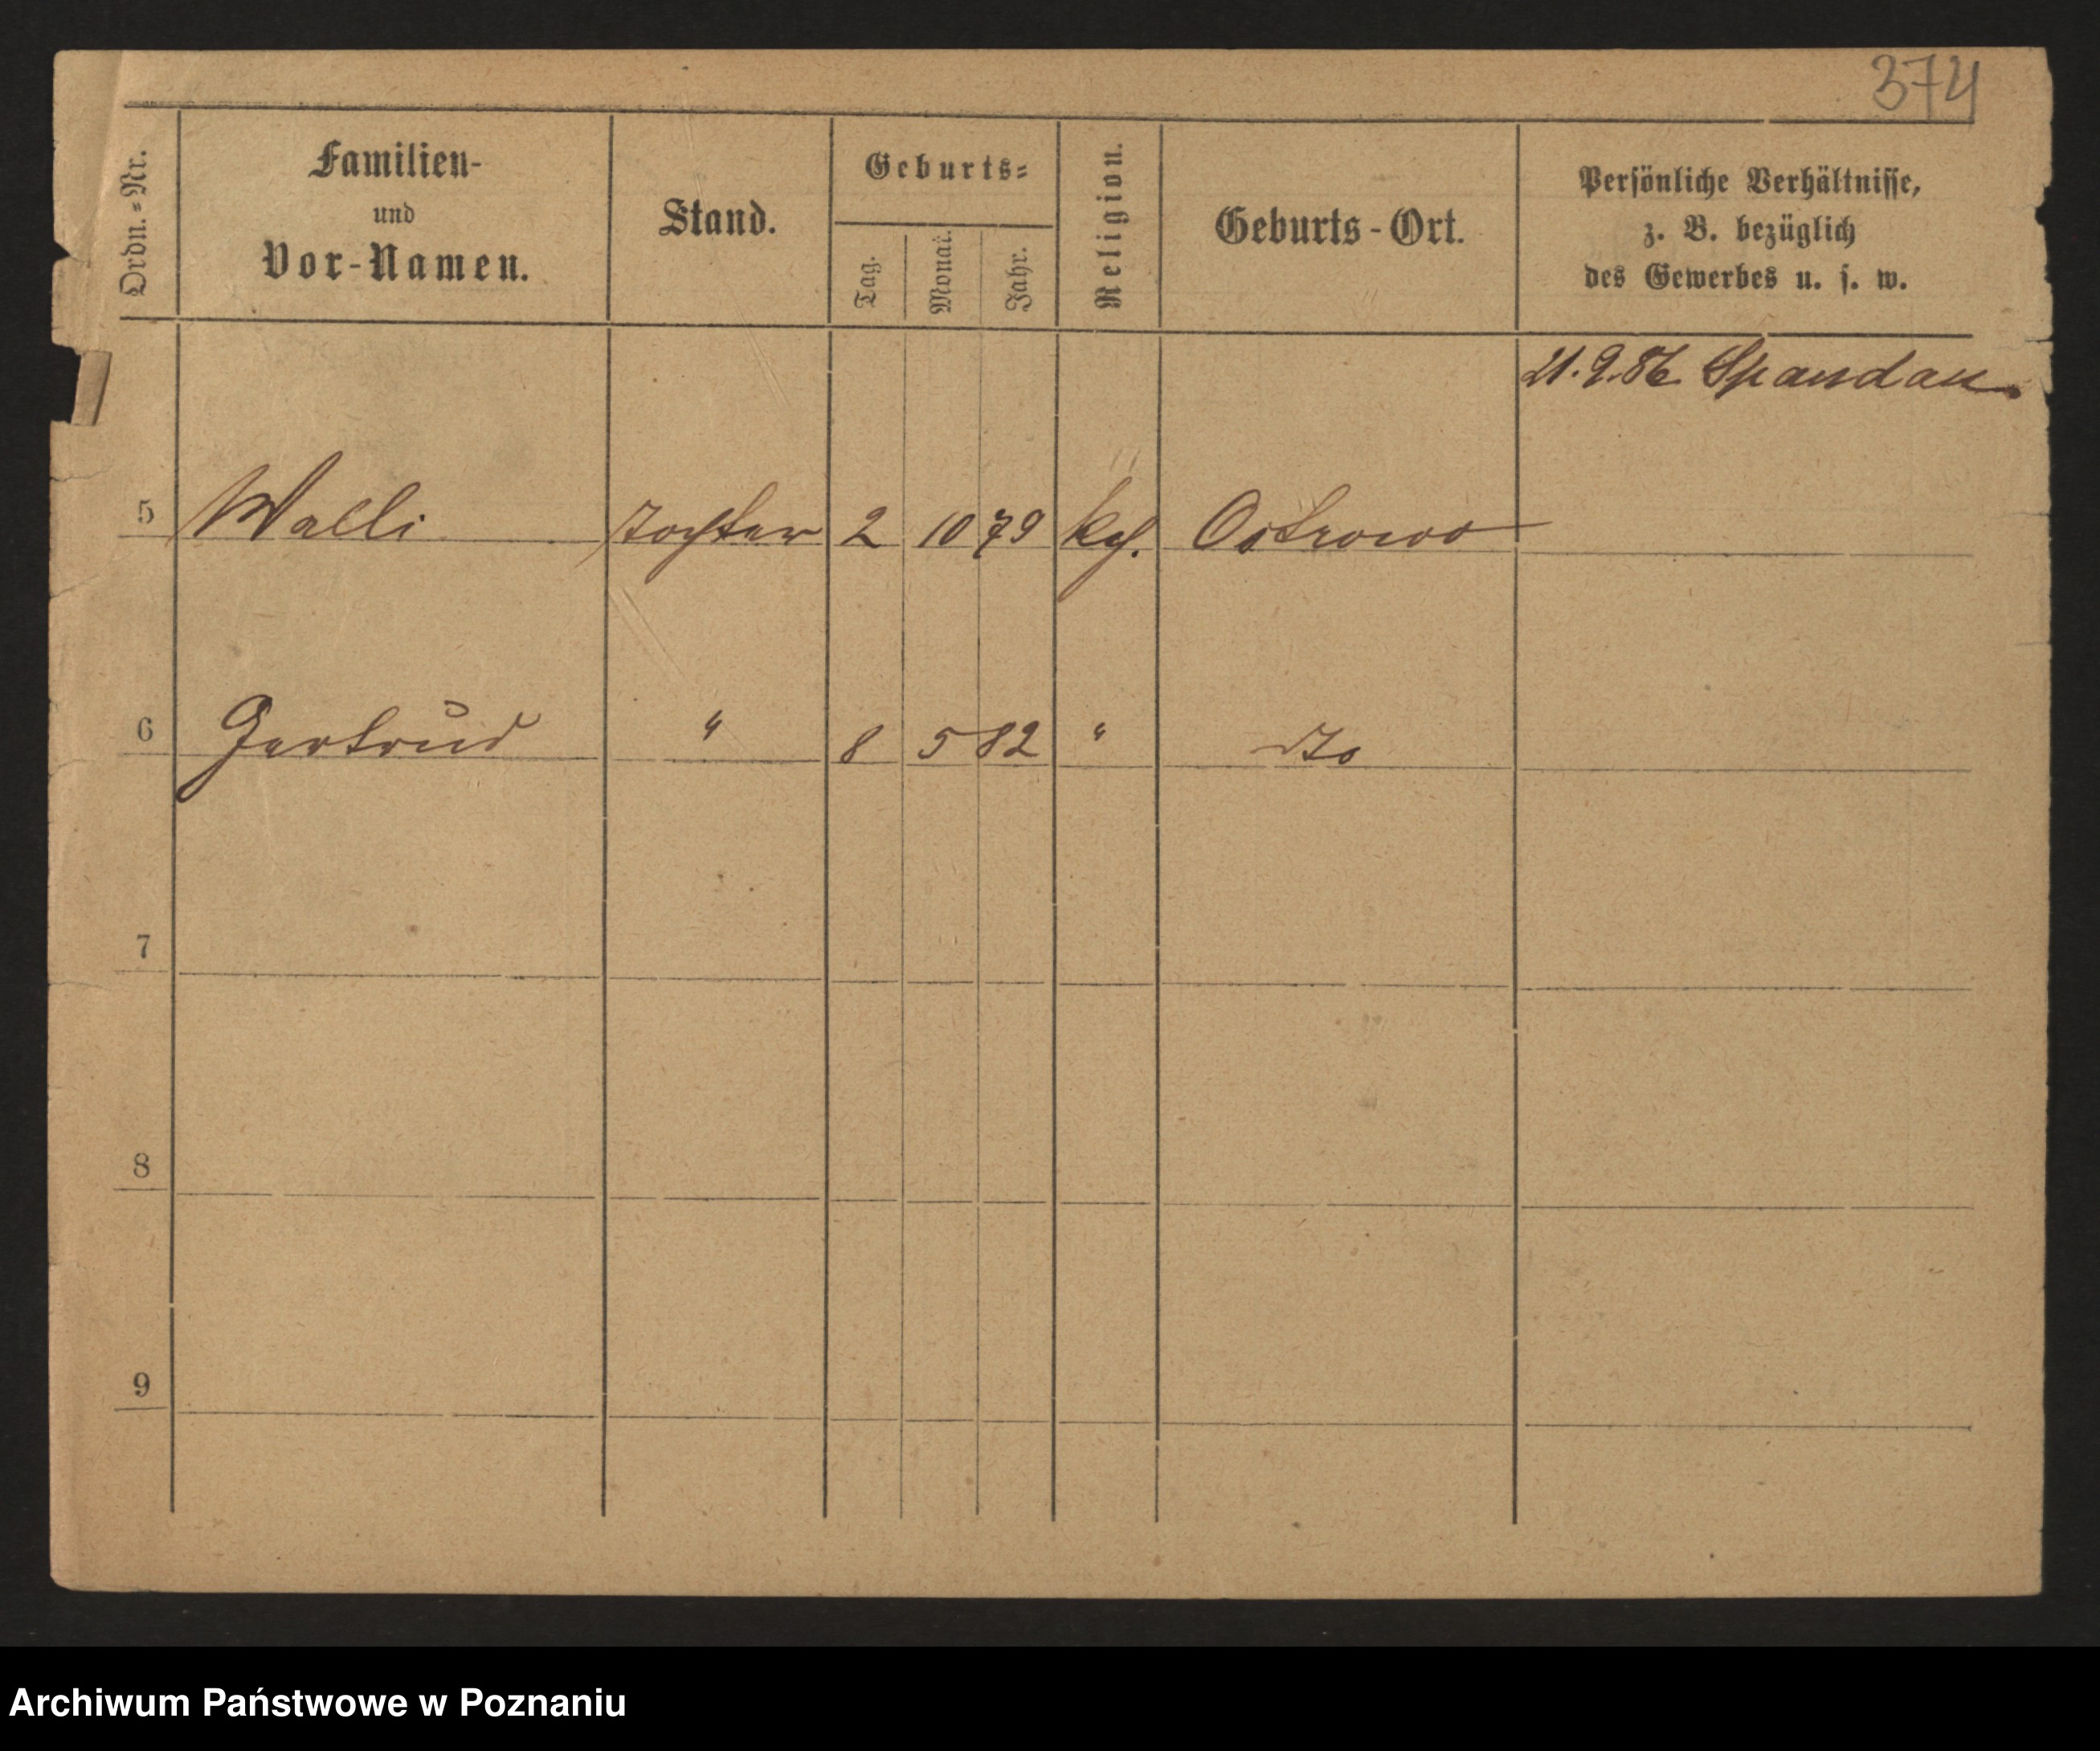 374
Ordn.=Nr.
Familien-
und
Vor-Namen.
Stand.
Geburts=
Tag.
Monat.
Jahr.
Religion.
Geburts-Ort.
Persönliche Verhältnisse,
z. B. bezüglich
des Gewerbes u. s. w.
21.9.86. Spandau.
5 Walli Tochter 2 10 79 Ostrowo
6 Gertrud " 8 5 82 " dto
7
8
9
Archiwum Państwowe w Poznaniu